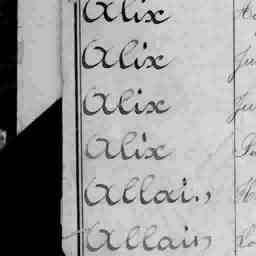 Alix
Alix
Alix
Alix
Allain
Allain